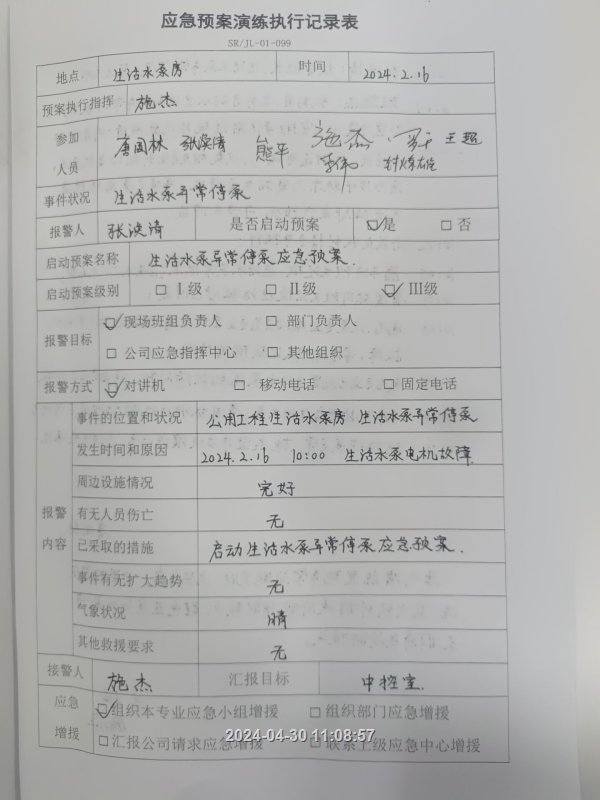 应急预案演练执行记录表
SR/JL-01-099
地点 生活水泵房 时间 2024.2.16
预案执行指挥 施杰
参加人员 唐国林 张涣清 熊平 施杰 王超
李伟
事件状况 生活水泵异常停泵
报警人 张涣清 是否启动预案 ☑是 □否
启动预案名称 生活水泵异常停泵应急预案.
启动预案级别 □Ⅰ级 □Ⅱ级 ☑Ⅲ级
报警目标 ☑现场班组负责人 □部门负责人
□公司应急指挥中心 □其他组织
报警方式 ☑对讲机 □移动电话 □固定电话
报警内容
事件的位置和状况 公用工程生活水泵房 生活水泵异常停泵
发生时间和原因 2024.2.16 10:00 生活水泵电机故障.
周边设施情况 完好
有无人员伤亡 无
已采取的措施 启动生活水泵异常停泵应急预案.
事件有无扩大趋势 无
气象状况 晴
其他救援要求 无
接警人 施杰 汇报目标 中控室.
应急增援 ☑组织本专业应急小组增援 □组织部门应急增援
□汇报公司请求应急增援 □联系上级应急中心增援
2024-04-30 11:08:57